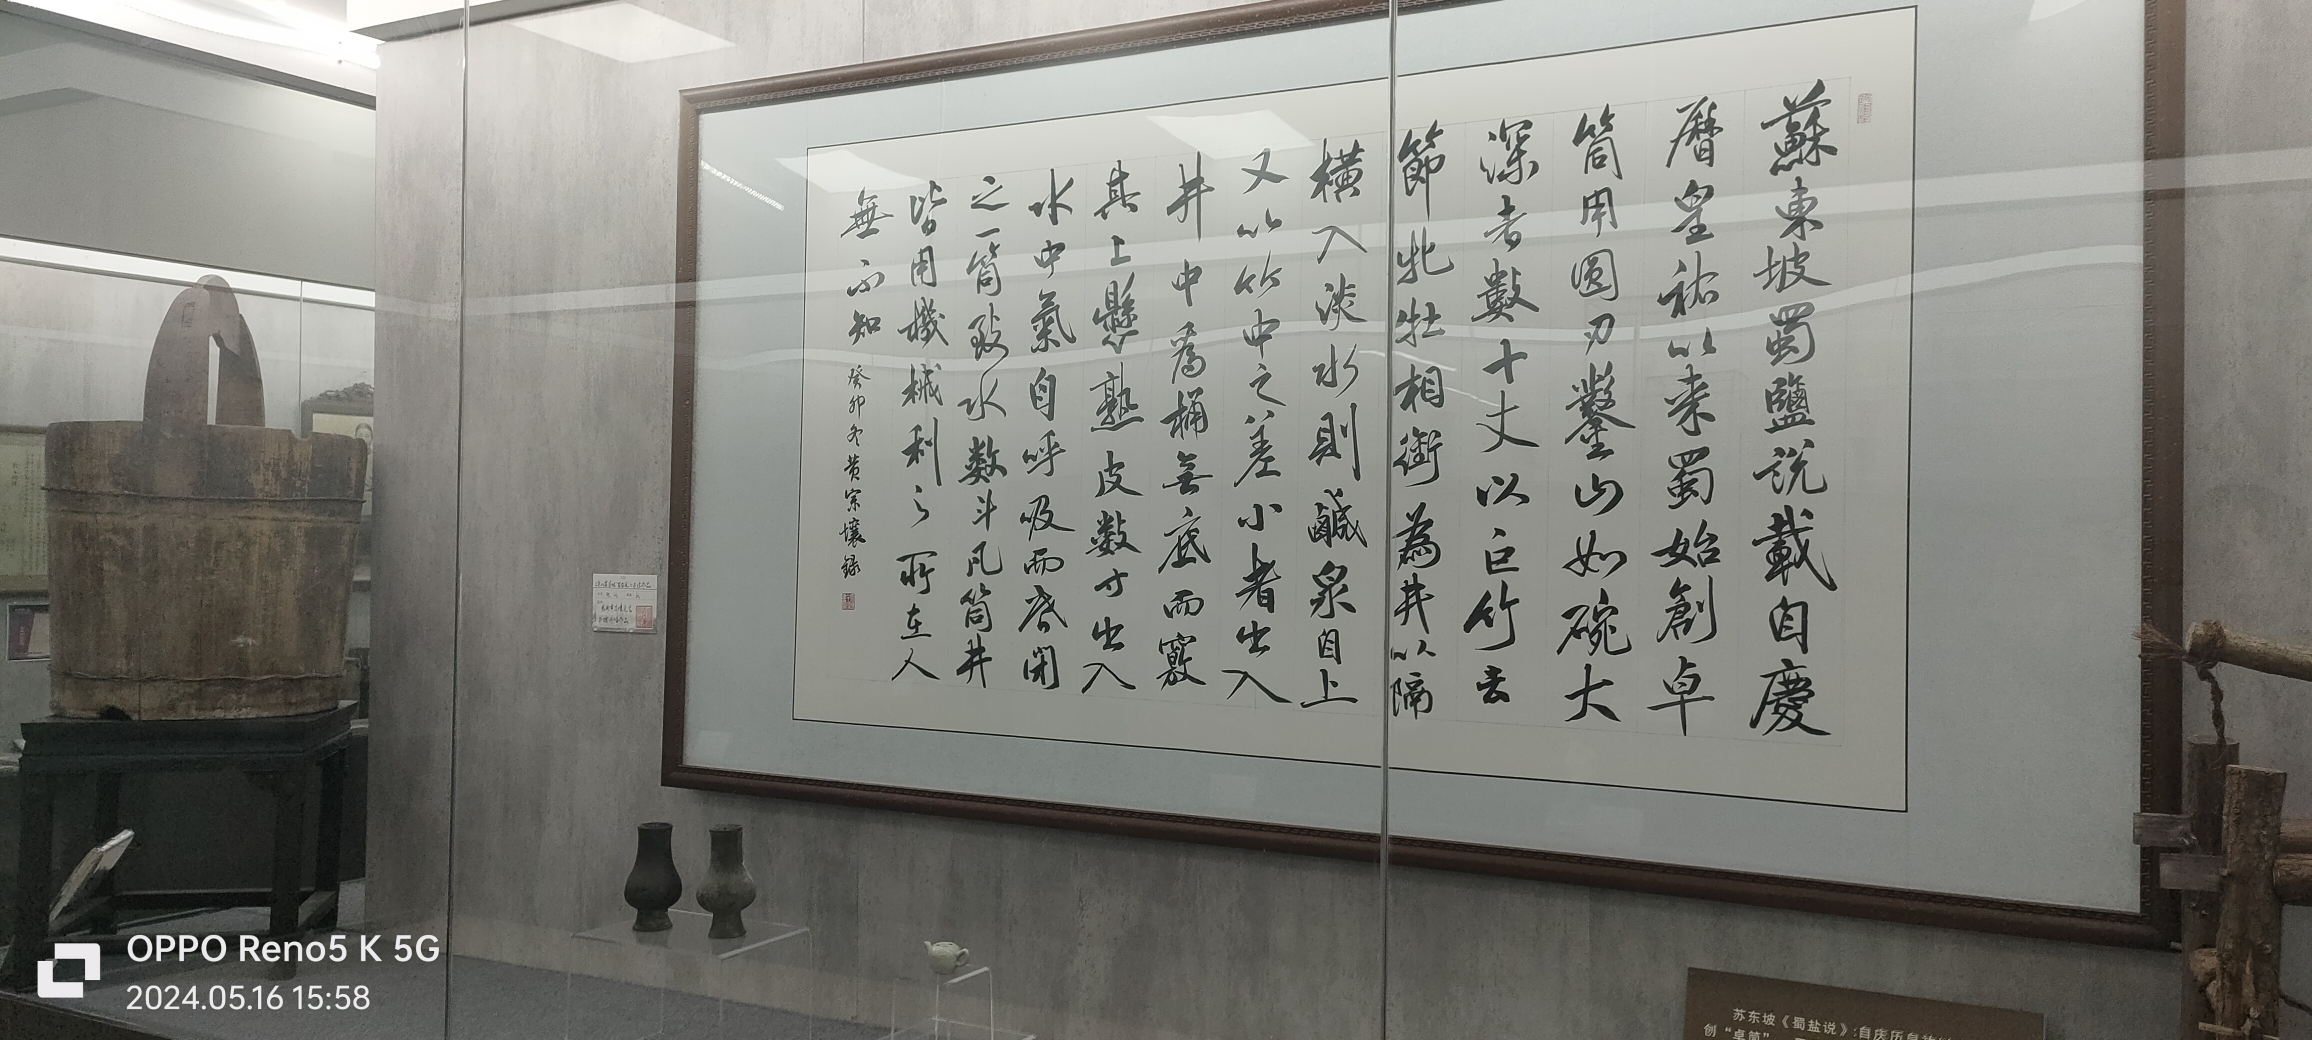 蘇東坡蜀鹽説載自慶
曆皇祐以来蜀始創卓
筒用圆刃鑿山如碗大
深者數十丈以巨竹去
節牝牡相銜為井以隔
横入淡水則鹹泉自上
又以竹中之差小者出入
井中為桶無底而竅
其上懸熟皮数寸出入
水中氣自呼吸而啓閉
之一筒致水数斗凡筒井
皆用機械利之所在人
無不知
癸卯冬黄宗壤録
苏东坡《蜀盐说》:自庆历皇祐
创“卓筒”
OPPO Reno5 K 5G
2024.05.16 15:58